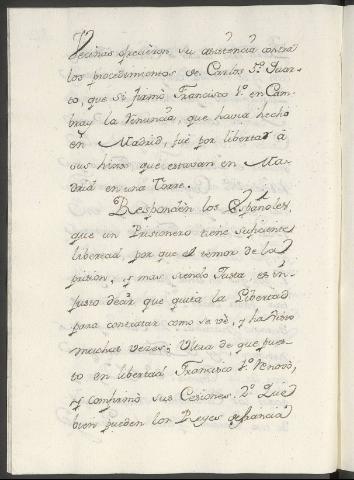 Vecinas ofrecieron su asistencia contra
los procedimientos de Carlos 5º. Quar-
to, que si firmò Francisco 1º. en Cam-
bray la Renuncia, que havia hecho
en Madrid, fuè por libertar à
sus hijos que estavan en Ma-
drid en una Torre.
Responden los Españoles,
que un Prisionero tiene suficiente
libertad, por que el temor de la
prision, y mas siendo Justa es in-
justo decir que quita la Libertad
para contratar como se vè, y ha visto
muchas vezes; Ultra de que pues-
to en libertad Francisco 1º. renovò,
y confirmò sus Cesiones. 2º. Que
bien pueden los Reyes de francia